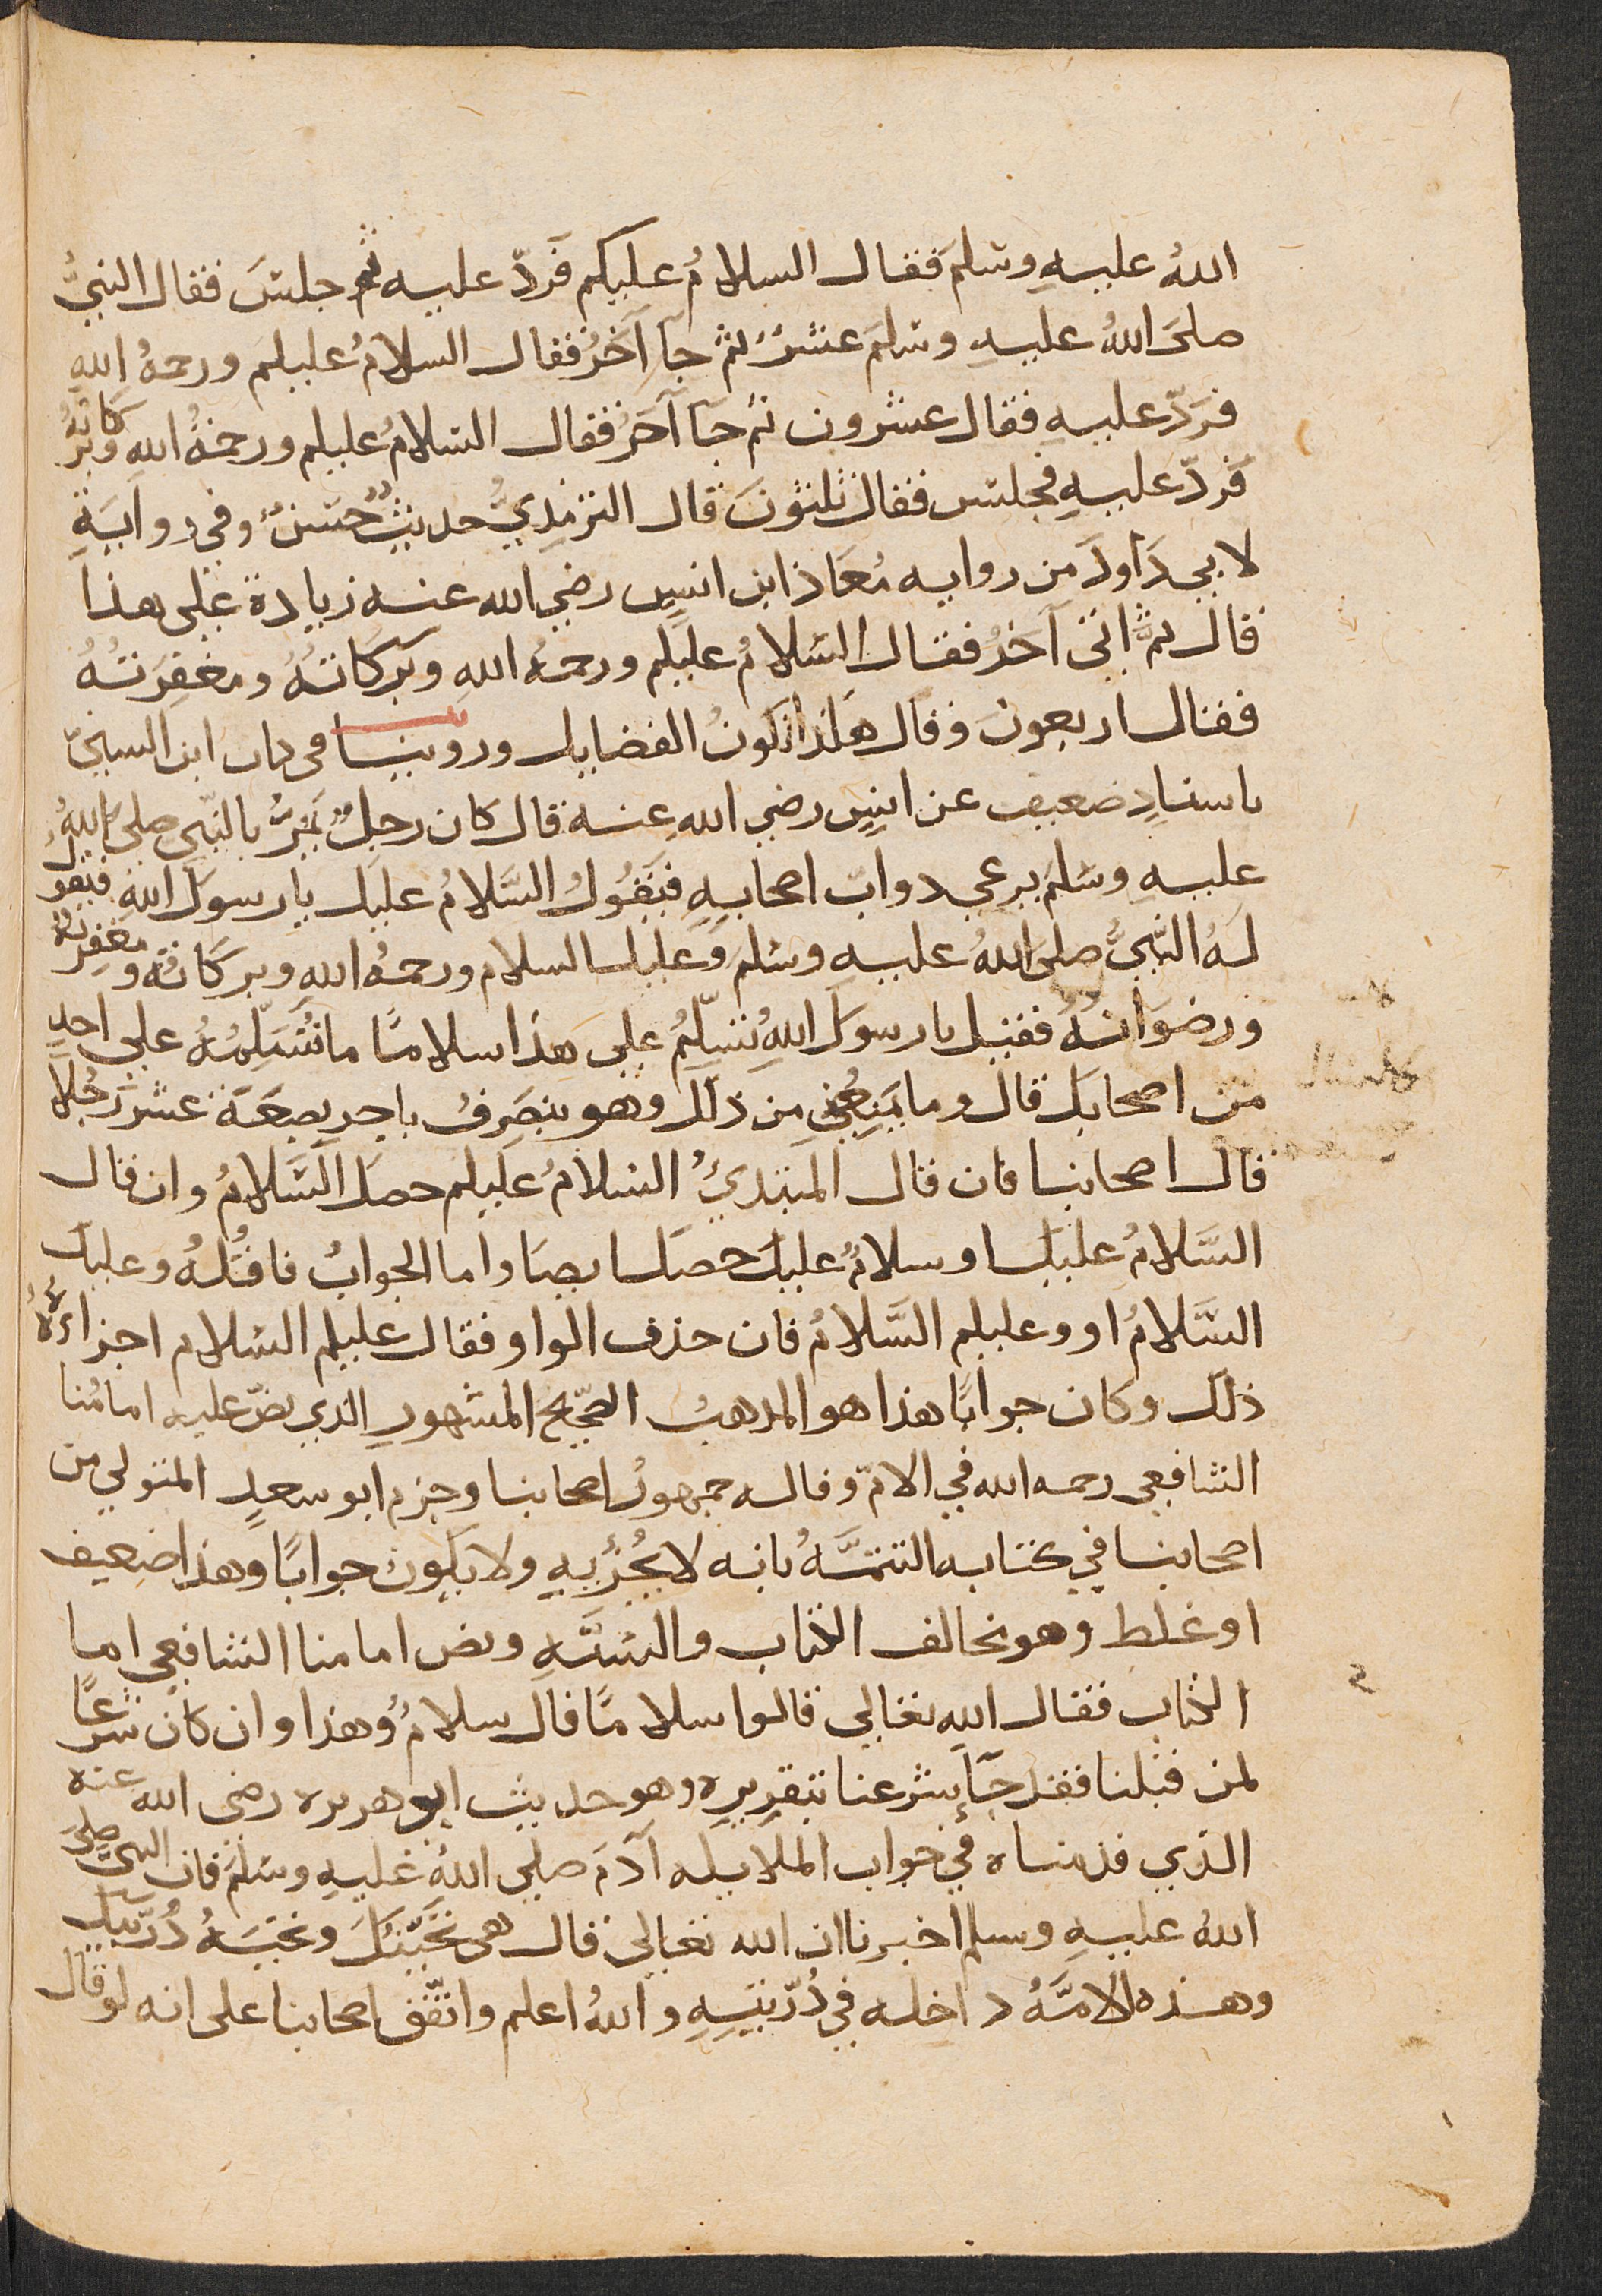 اللهُ عليهِ وسلمَ فقال السلامُ عليكم فردّ عليه ثم جلسَ فقال النبيُّ
صلى اللهُ عليهِ وسلمَ عشرٌ ثم جآ آخرُ فقال السلامُ عليكم ورحمةُ اللهِ
فردّ عليهِ فقال عشرون ثم جآ آخرُ فقال السلامُ عليكم ورحمةُ اللهِ وبركاتهُ
فردّ عليهِ فجلس فقال ثلثونَ قال الترمذيُّ حديثٌ حسنٌ وفي روايةٍ
لابي داودَ من روايه مُعَاذ ابن انسٍ رضي الله عنه زيادة على هذا
قال ثمَّ اتى آخرُ فقال السلامُ عليكم ورحمةُ اللهِ وبركاتهُ ومغفرتهُ
فقال اربعونَ وقال هكذا تكونُ الفضايل وروينا في كتاب ابن السنيّ
باسنادٍ ضعيف عن انسٍ رضي اللهِ عنه قال كان رجلٌ يمرُّ بالنّبي صلى اللهُ
عليهِ وسلمَ يرعي دوابّ اصحابهِ فيَقُولُ السَّلامُ عليكَ يا رسولَ اللهِ فيقولُ
لهُ النَّبيُّ صلى اللهُ عليه وسلمَ وعليك السلام ورحمةُ الله وبركاتُه ومغفِرتهُ
ورضوَانهُ فقيل يا رسولَ اللهِ تُسَلّمُ على هذا سلامًا ما تُسَلّمُهُ على احدٍ
من اصحابكَ قال وما يَمنعُني من ذلك وهو ينصَرِفُ باجرِ بضعَةَ عشرَ رجُلاً
قال اصحابنا فان قال المبتدئُ السلامُ عليكم حصلَ السَّلامُ وان قال
السَّلامُ عليك او سلامٌ عليكَ حصل ايضا واما الجوابُ فاقلُّهُ وعليك
السَّلامُ او وعليكم السَّلامُ فان حذف الواو فقال عليكم السلام اجزاءهُ
ذلك وكان جوابًا هذا هو المذهبُ الصّحيح المشهور الذي نصّ عليه امامُنا
الشافعي رحمه الله في الامّ وقاله جمهورُ اصحابنا وجزم ابو سعدٍ المتولي من
اصحابنا في كتابه التتمَّةُ بانه لا يُجْزِيهِ ولا يكون جوابًا وهذا ضعيف
او غلط وهو مخالف الكتاب والسُّنّهِ ونص امامنا الشافعي اما
الكتاب فقال الله تعالى قالوا سلامًا قال سلامٌ وهذا وان كان شرعًا
لمن قبلنا فقد جآء شرعنا بتقريره وهو حديث ابو هريره رضى الله عنه
الذي قدمناه في جواب الملايكه آدمَ صلى اللهُ عليهِ وسلمَ فان النبى صلى
اللهُ عليهِ وسلم اخبرنا ان الله تعالى قال هى تحيّتكَ وتحيّةُ ذُريّتكَ
وهذه الامّةُ داخِله في ذُرّيّتِهِ واللهُ اعلم واتّفق اصحابنا على انه لو قال